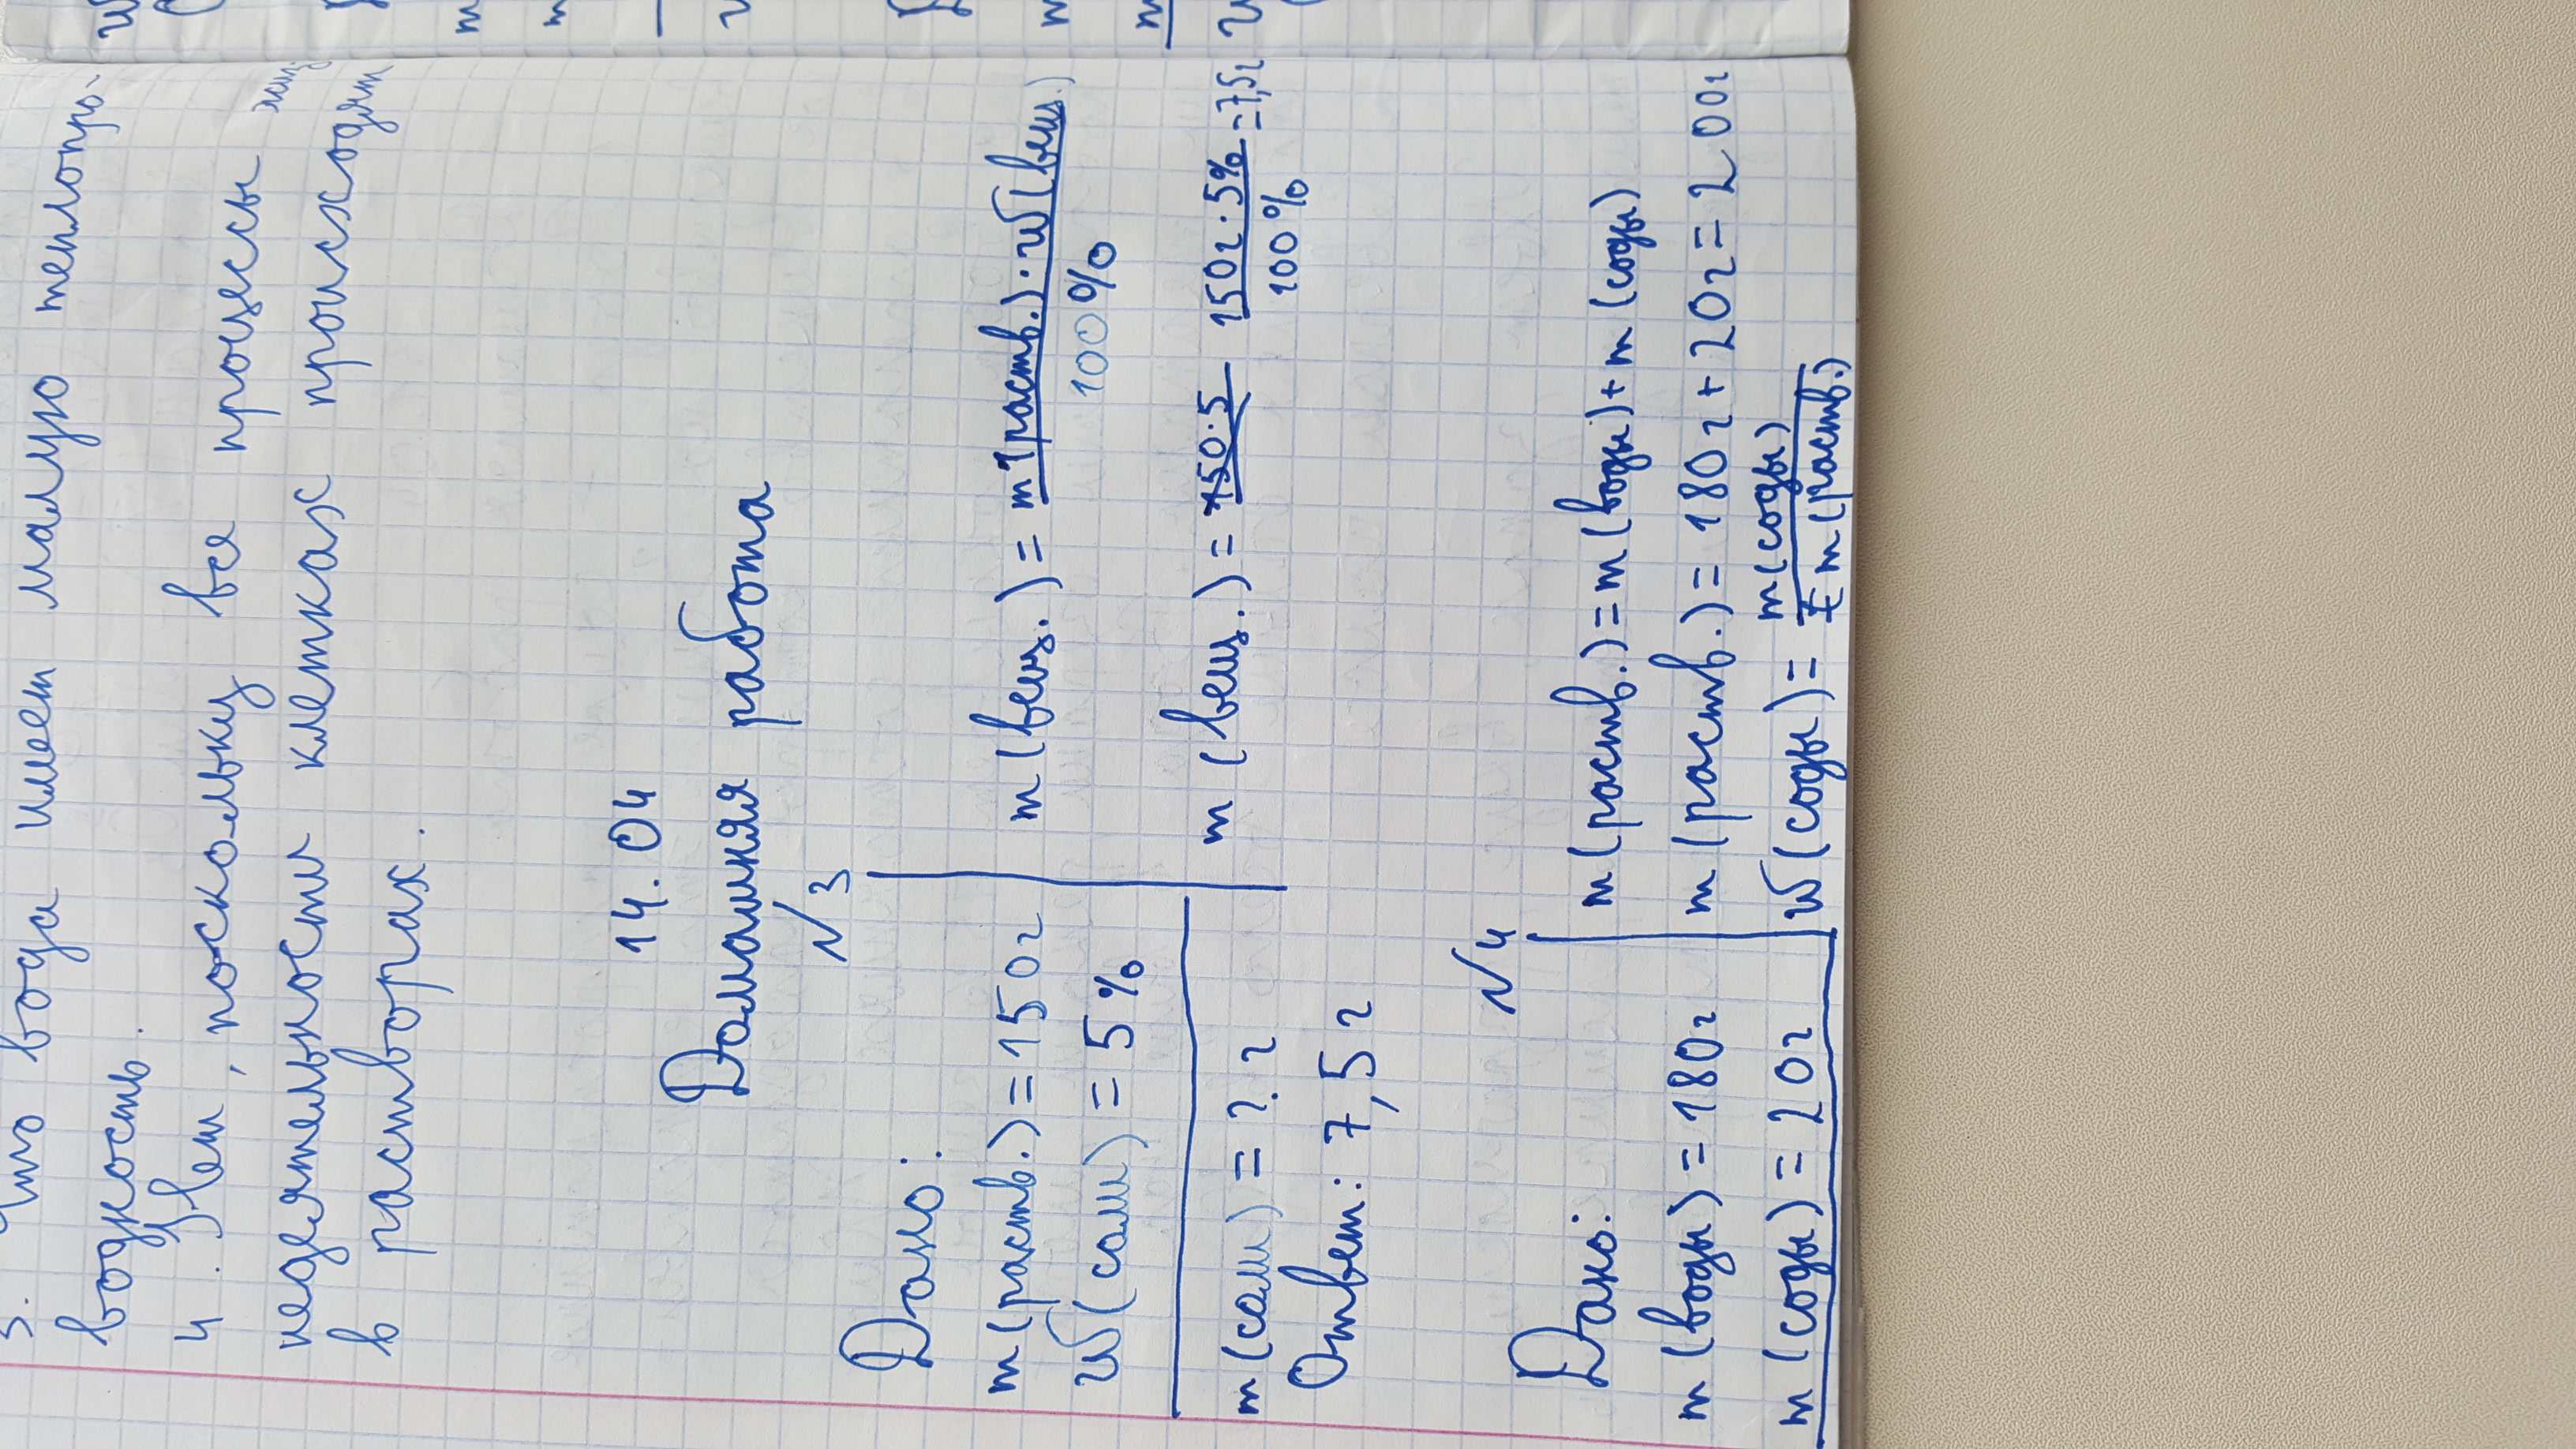 3. Что вода имеет малую теплопро-
водность.
4. Нет, поскольку все процессы
недеятельности клетках происходят
в растворах.
14.04
Домашняя работа
№3
Дано:
m(раств.)=150г
w(соли)=5%
m(соли)=? г
m(вещ.)=m(раств.)·w(вещ.)
100%
m(вещ.)=150·5 150г·5%=7,5г
100%
Ответ: 7,5г
№4
Дано:
m(воды)=180г
m(соды)=20г
m(раств.)=m(воды)+m(соды)
m(раств.)=180г+20г=200г
w(соды)=m(соды)
m(раств.)